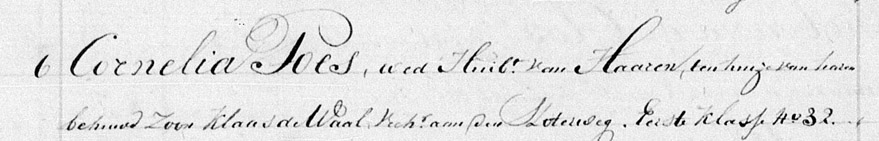 6 Cornelia Poes, wed Huibt van Haaren, ten huize van haren
behuwd Zoon Klaas de Waal, Vecht aan den Sloterweg. Eerste Klasse No 32.